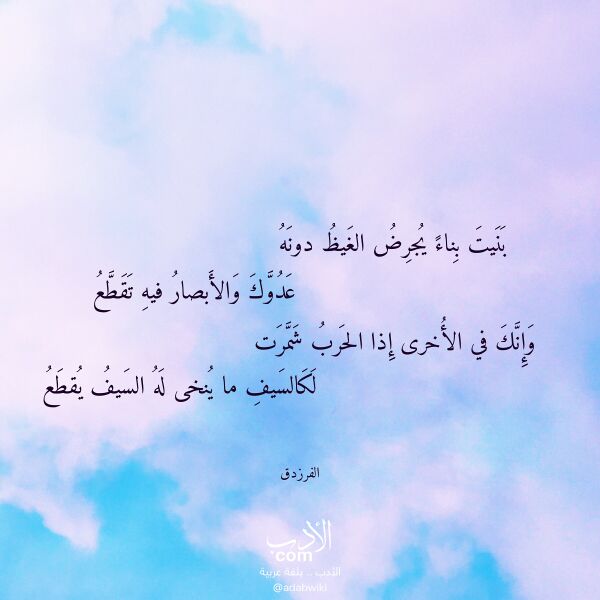 بَنَيتَ بِناءً يُجرِضُ الغَيظُ دونَهُ
عَدُوَّكَ وَالأَبصارُ فيهِ تَقَطَّعُ
وَإِنَّكَ في الأُخرى إِذا الحَربُ شَمَّرَت
لَكَالسَيفِ ما يُنخى لَهُ السَيفُ يُقطَعُ
الفرزدق
الأدب
.com
الأدب .. بلغة عربية
@adabwiki